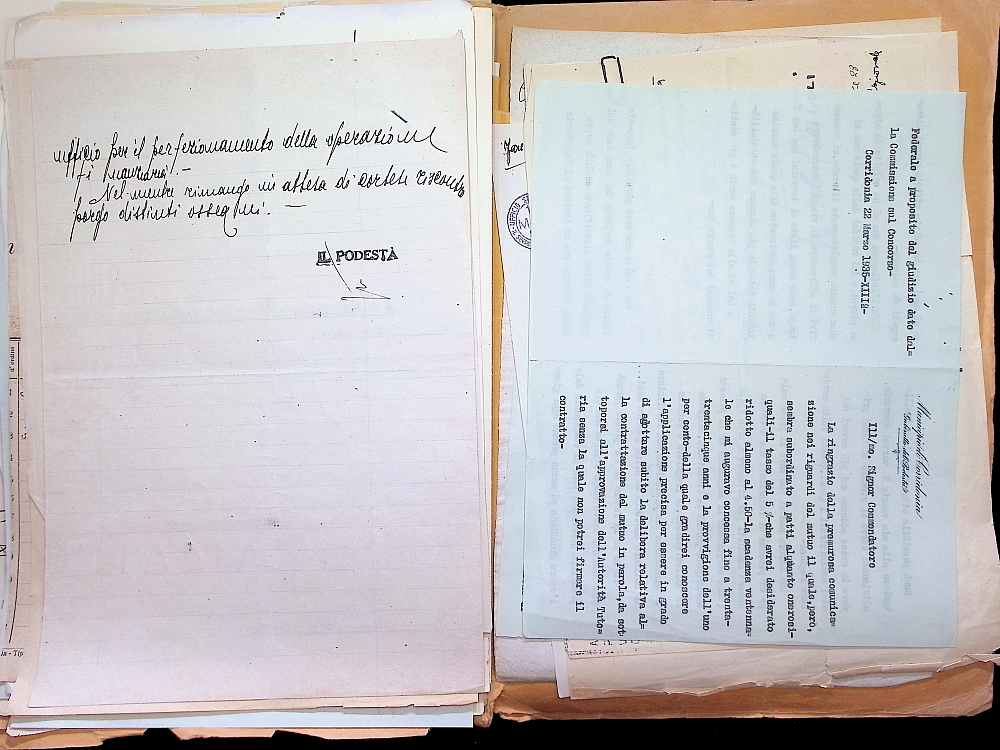 ufficio per il perfezionamento della operazione
finanziaria. -
Nel mentre rimango in attesa di cortese riscontro
porgo distinti ossequi. -
IL PODESTÀ
Municipio di Corridonia
Gabinetto del Podestà
Ill/mo. Signor Commendatore
La ringrazio della premurosa comunica=
zione nei riguardi del mutuo il quale, però,
sembra subordinato a patti alquanto onerosi-
quali-il tasso del 5 %-che avrei desiderato
ridotto almeno al 4.50-la scadenza ventenna=
le che mi auguravo concessa fino a trenta-
trentacinque anni e la provvigione dell'uno
per cento-della quale gradirei conoscere
l'applicazione precisa per essere in grado
di adottare subito la delibera relativa al=
la contrattazione del mutuo in parola, da sot
toporsi all'approvazione dell'Autorità Tuto=
ria senza la quale non potrei firmare il
contratto-
Federale a proposito del giudizio dato dal=
la Commissione sul Concorso-
Corridonia 22 Marzo 1935-XIIIº-